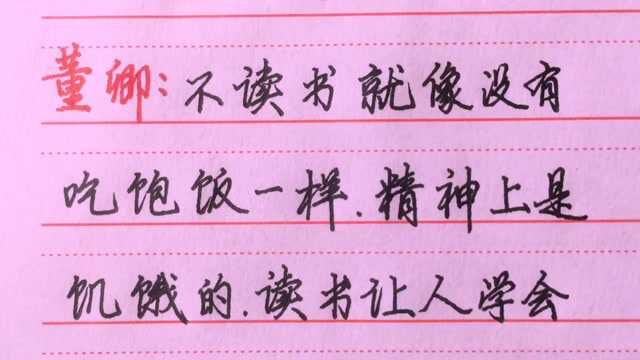 董卿:不读书就像没有
吃饱饭一样.精神上是
饥饿的.读书让人学会